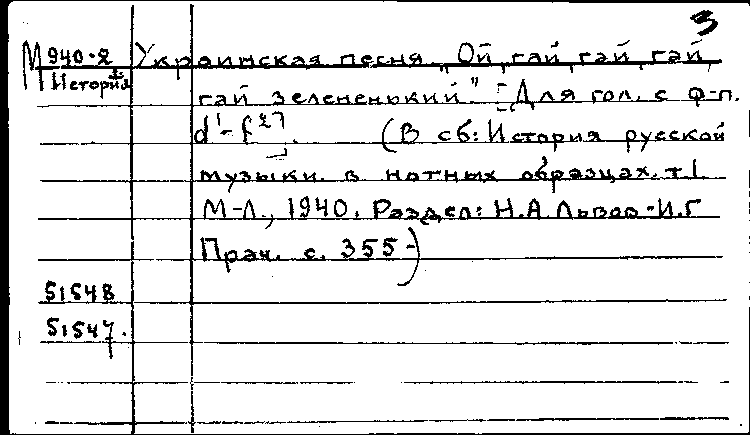 3
М940-2 Украинская песня „Ой, гай, гай, гай,
История гай зелененький." [Для гол. с ф-п.
d¹-f²] (В сб: История русской
музыки в нотных образцах. т.1.
М-Л., 1940. Раздел: Н.А. Львов-И.Г
Прач. с. 355-)
51548
51547.